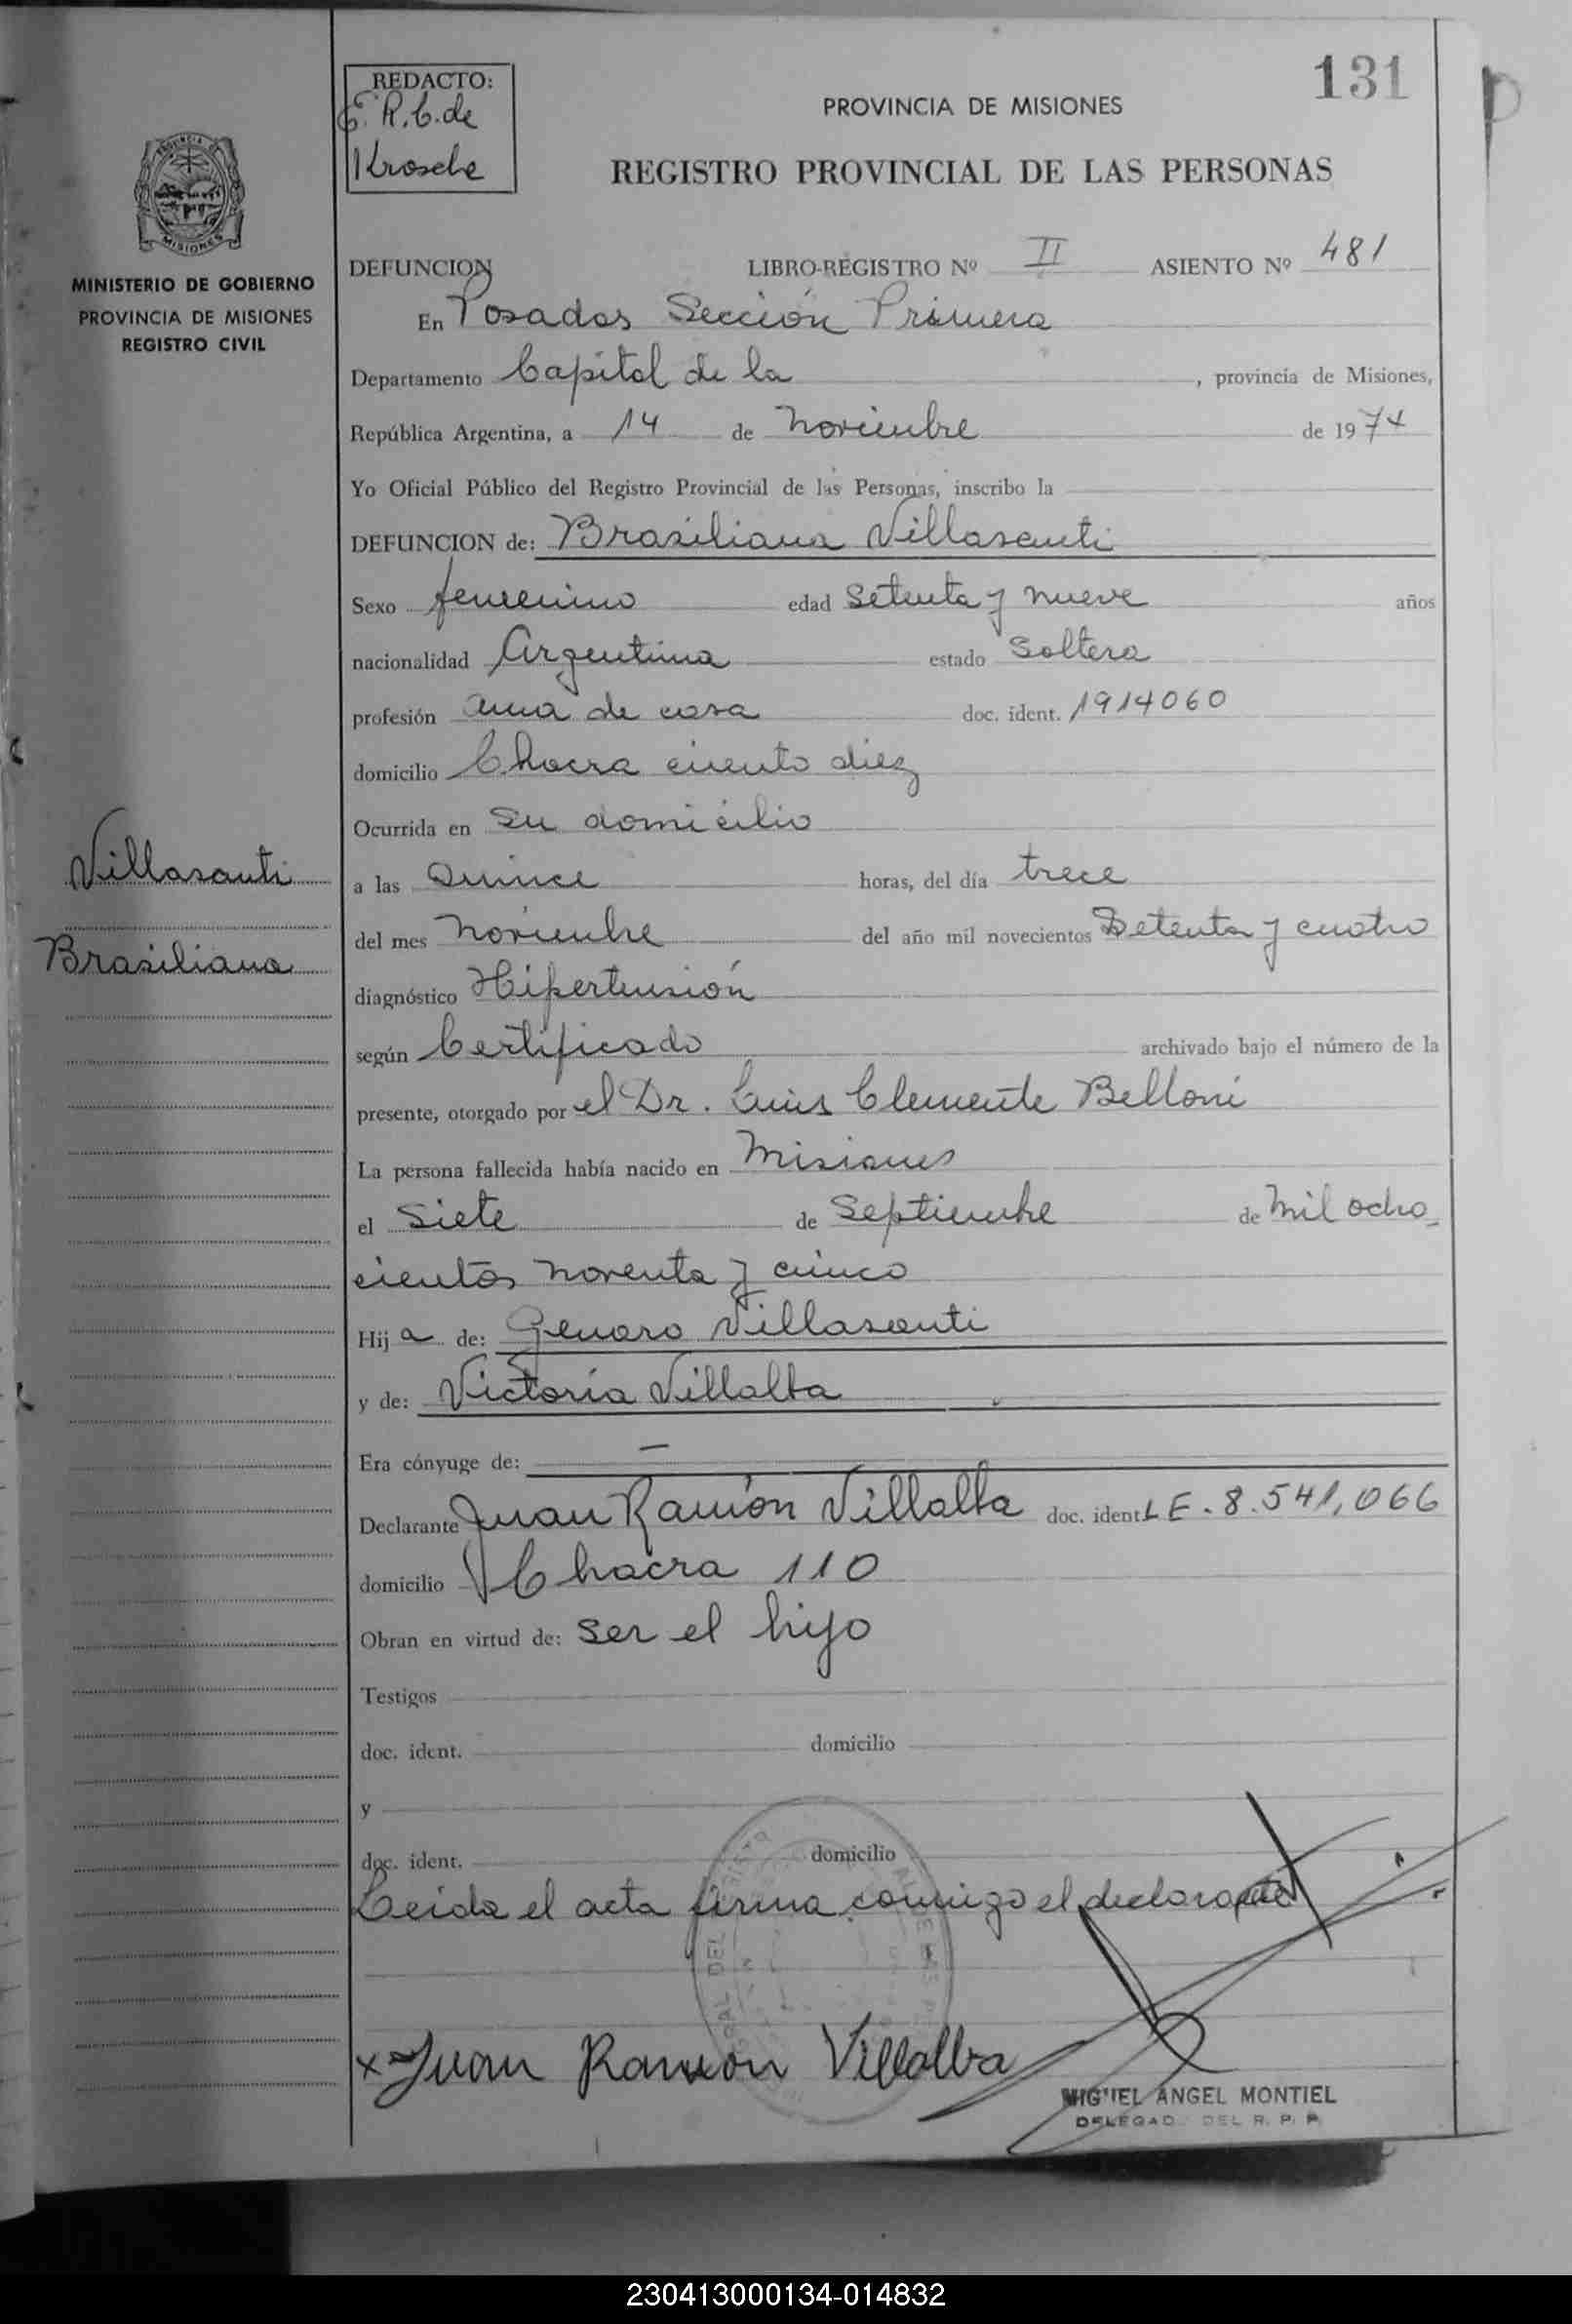 131
REDACTO:
E. R. C. de
Krosche
PROVINCIA DE MISIONES
REGISTRO PROVINCIAL DE LAS PERSONAS
PROVINCIA DE
MISIONES
MINISTERIO DE GOBIERNO
PROVINCIA DE MISIONES
REGISTRO CIVIL
DEFUNCION LIBRO-REGISTRO Nº II ASIENTO Nº 481
En Posadas Sección Primera
Departamento Capital de la , provincia de Misiones,
República Argentina, a 14 de noviembre de 1974
Yo Oficial Público del Registro Provincial de las Personas, inscribo la
DEFUNCION de: Brasiliana Villasanti
Sexo femenino edad Setenta y nueve años
nacionalidad Argentina estado Soltera
profesión ama de casa doc. ident. 1914060
domicilio Chacra ciento diez
Ocurrida en su domicilio
Villasanti
a las Quince horas, del día trece
Brasiliana
del mes noviembre del año mil novecientos Setenta y cuatro
diagnóstico Hipertensión
según Certificado archivado bajo el número de la
presente, otorgado por el Dr. Luis Clemente Belloni
La persona fallecida había nacido en Misiones
el Siete de Septiembre de Mil ocho
cientos noventa y cinco
Hij a de: Genaro Villasanti
y de: Victoria Villalba
Era cónyuge de: —
Declarante Juan Ramón Villalba doc. ident. LE. 8.541,066
domicilio Chacra 110
Obran en virtud de: ser el hijo
Testigos
doc. ident. domicilio
y
doc. ident. domicilio
Leida el acta firma conmigo el declarante
x Juan Ramon Villalba
MIGUEL ANGEL MONTIEL
DELEGADO DEL R. P. P.
230413000134-014832